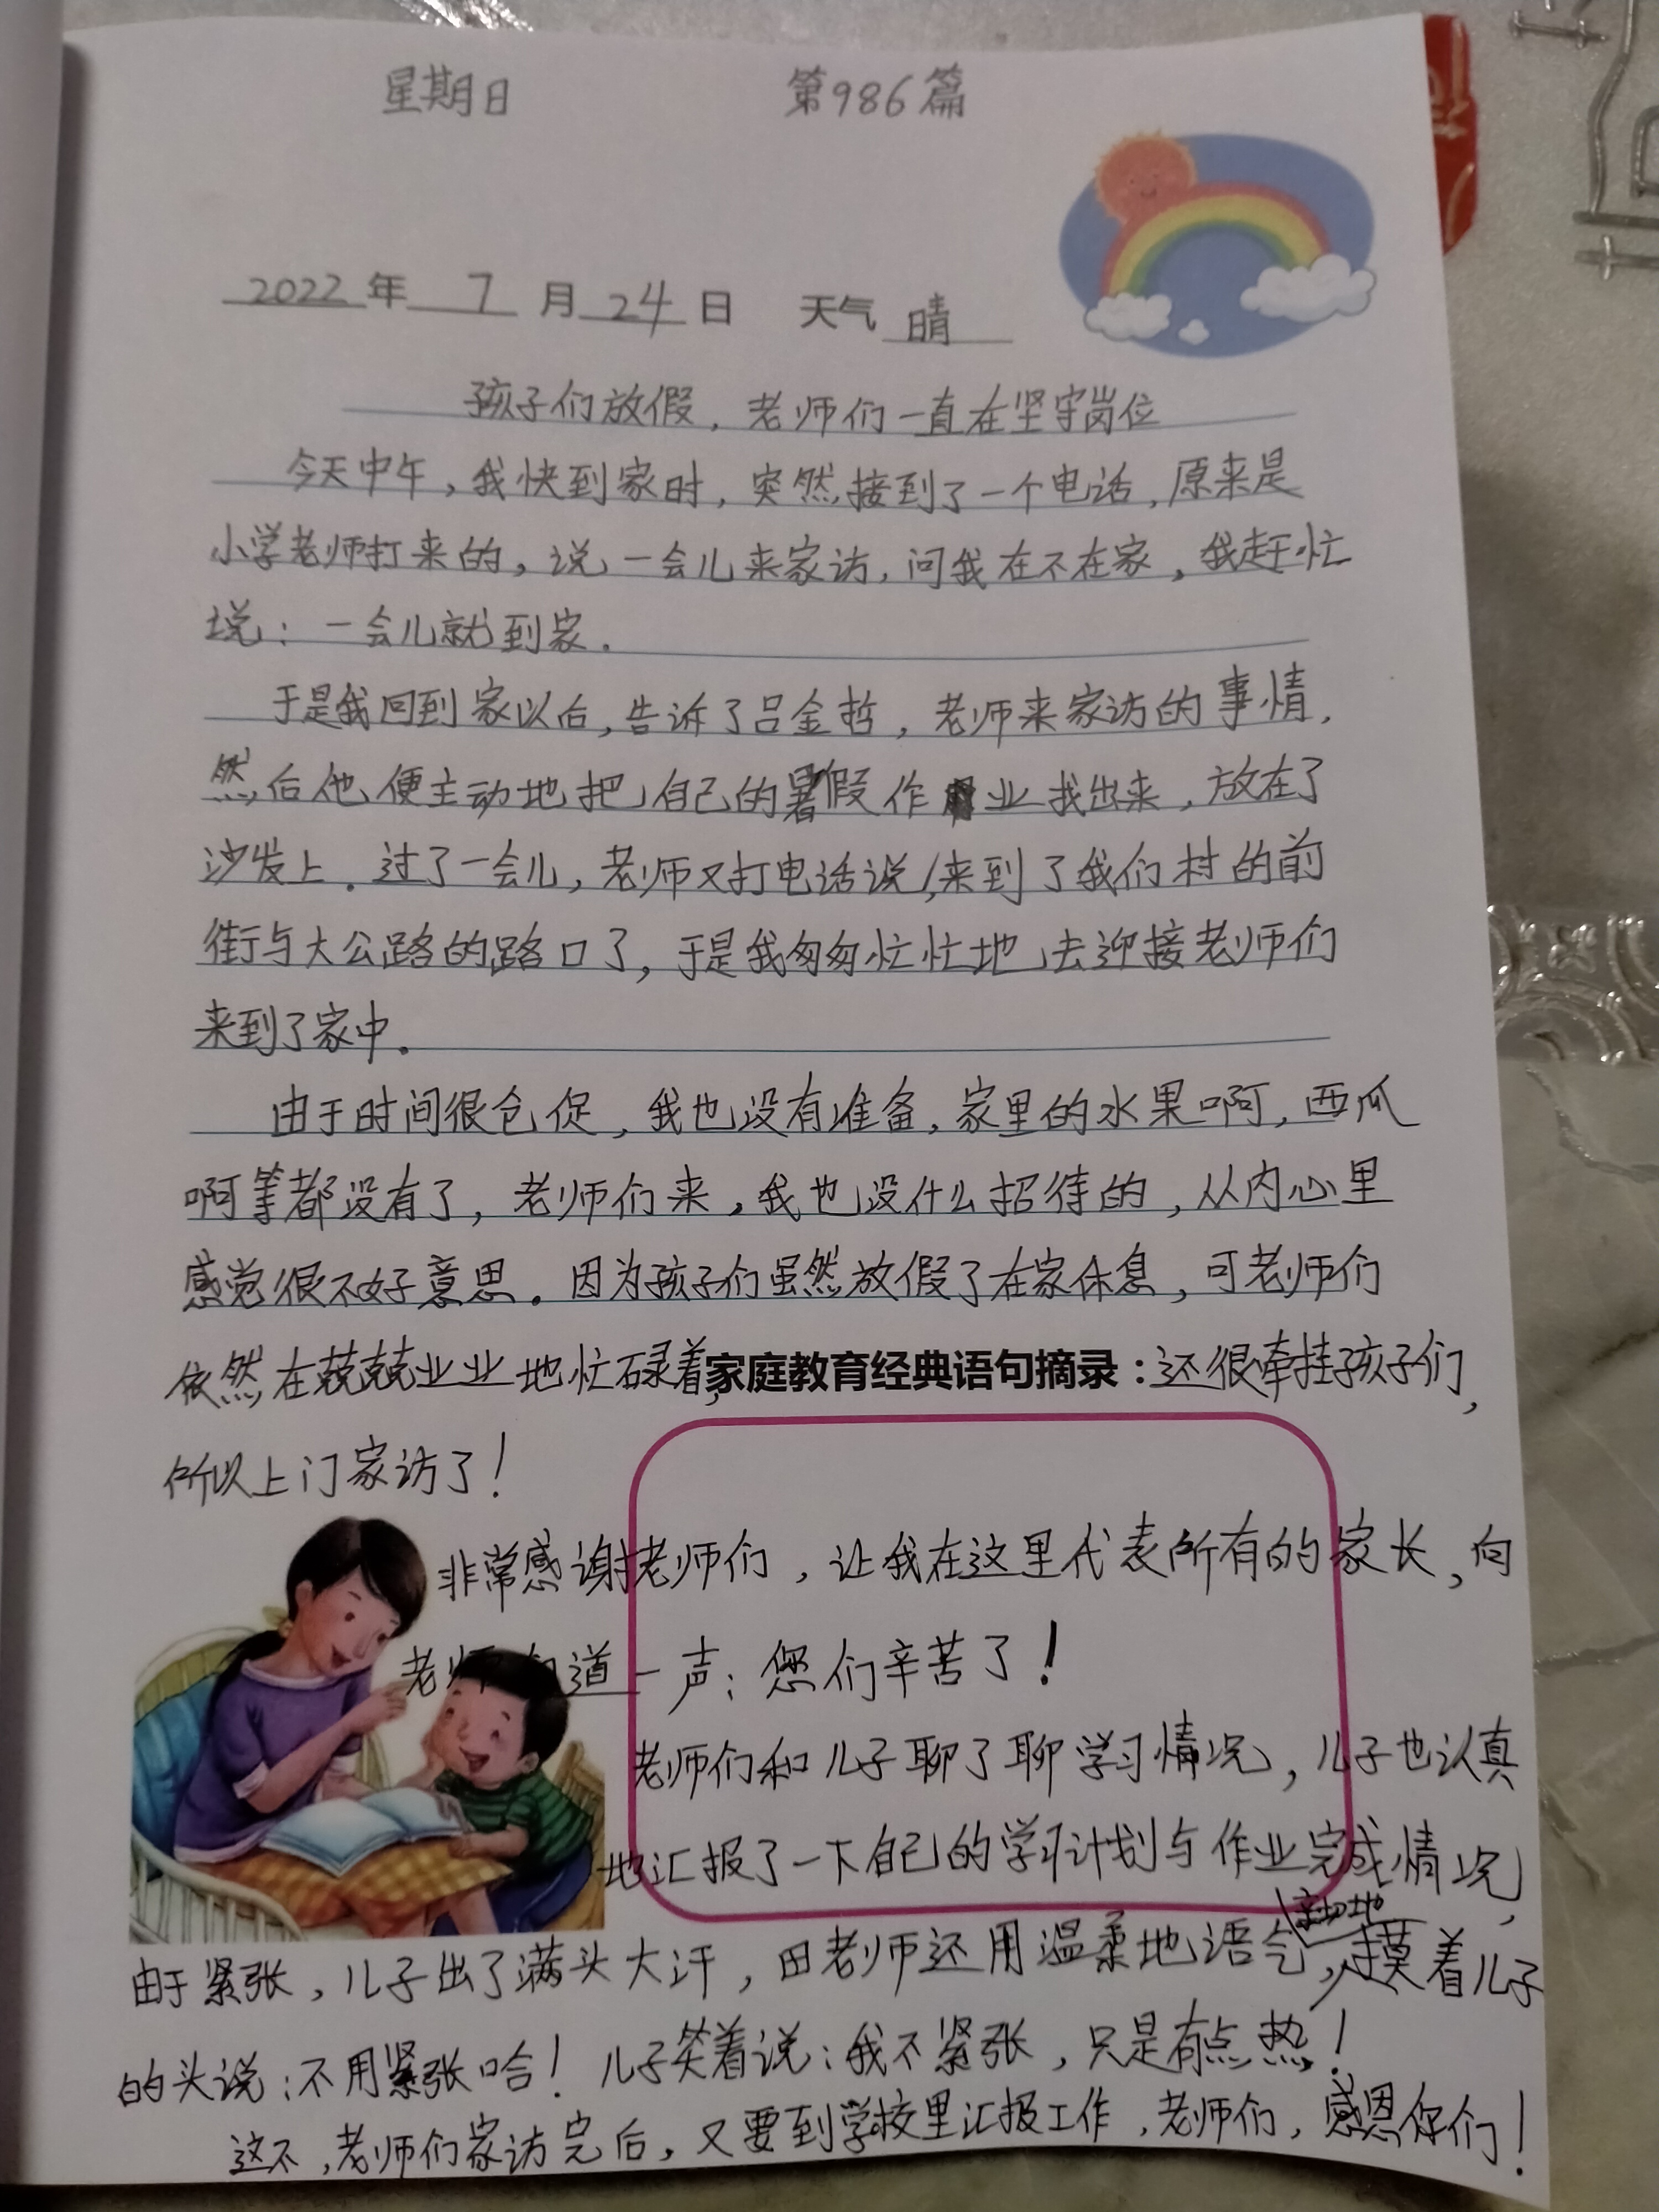 星期日 第986篇
2022年 7 月 24 日 天气 晴
孩子们放假，老师们一直在坚守岗位
今天中午，我快到家时，突然接到了一个电话，原来是
小学老师打来的，说一会儿来家访，问我在不在家，我赶忙
说：一会儿就到家。
于是我回到家以后，告诉了吕金哲，老师来家访的事情，
然后他便主动地把自己的暑假作业找出来，放在了
沙发上。过了一会儿，老师又打电话说，来到了我们村的前
街与大公路的路口了，于是我匆匆忙忙地去迎接老师们
来到了家中。
由于时间很仓促，我也没有准备，家里的水果啊，西瓜
啊等都没有了，老师们来，我也没什么招待的，从内心里
感觉很不好意思。因为孩子们虽然放假了在家休息，可老师们
依然在兢兢业业地忙碌着，家庭教育经典语句摘录：还很牵挂孩子们，
所以上门家访了！
非常感谢老师们，让我在这里代表所有的家长，向
老师 道一声：您们辛苦了！
老师们和儿子聊了聊学习情况，儿子也认真
地汇报了一下自己的学习计划与作业完成情况，
由于紧张，儿子出了满头大汗，田老师还用温柔地语气，亲切地摸着儿子
的头说：不用紧张哈！儿子笑着说：我不紧张，只是有点热！
这不，老师们家访完后，又要到学校里汇报工作，老师们，感恩你们！